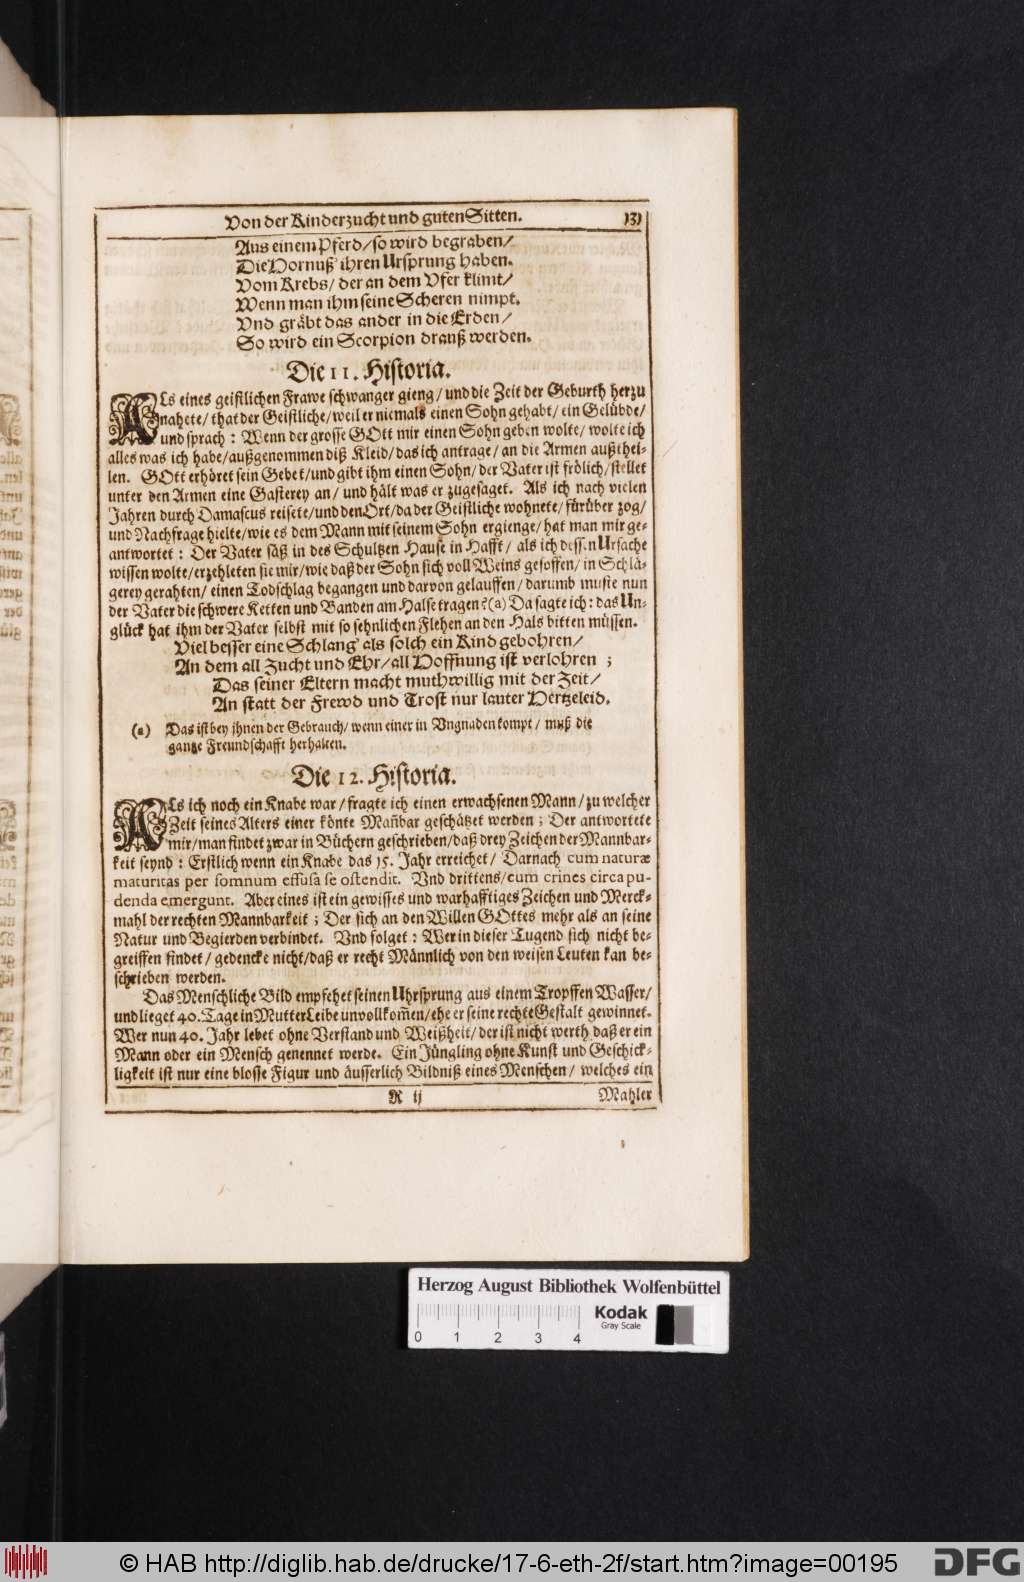 Von der Kinderzucht und guten Sitten. 131
Aus einem Pferd/ so wird begraben/
Die Hornuß ihren Ursprung haben.
Vom Krebs/ der an dem Vfer klimt/
Wenn man ihm seine Scheren nimpt.
Vnd gräbt das ander in die Erden/
So wird ein Scorpion drauß werden.
Die 11. Historia.
ALs eines geistlichen Frawe schwanger gieng/ und die Zeit der Geburth herzu
nahete/ that der Geistliche/ weil er niemals einen Sohn gehabt/ ein Gelübde/
und sprach: Wenn der grosse GOtt mir einen Sohn geben wolte/ wolte ich
alles was ich habe/ außgenommen diß Kleid/ das ich antrage/ an die Armen außthei-
len. GOtt erhöret sein Gebet/ und gibt ihm einen Sohn/ der Vater ist frölich/ stellet
unter den Armen eine Gasterey an/ und hält was er zugesaget. Als ich nach vielen
Jahren durch Damascus reisete/ und den Ort/ da der Geistliche wohnete/ fürüber zog/
und Nachfrage hielte/ wie es dem Mann mit seinem Sohn ergienge/ hat man mir ge-
antwortet: Der Vater säß in des Schultzen Hause in Hafft/ als ich dessen Ursache
wissen wolte/ erzehleten sie mir/ wie daß der Sohn sich voll Weins gesoffen/ in Schlä-
gerey gerahten/ einen Todschlag begangen und darvon gelauffen/ darumb muste nun
der Vater die schwere Ketten und Banden am Halse tragen? (a) Da sagte ich: das Un-
glück hat ihm der Vater selbst mit so sehnlichen Flehen an den Hals bitten müssen.
Viel besser eine Schlang' als solch ein Kind gebohren/
An dem all Zucht und Ehr/ all Hoffnung ist verlohren;
Das seiner Eltern macht muthwillig mit der Zeit/
An statt der Frewd und Trost nur lauter Hertzeleid.
(a) Das ist bey jhnen der Gebrauch/ wenn einer in Vngnaden kompt/ muß die
gantze Freundschafft herhalten.
Die 12. Historia.
ALs ich noch ein Knabe war/ fragte ich einen erwachsenen Mann/ zu welcher
Zeit seines Alters einer könte Mañbar geschätzet werden; Der antwortete
mir/ man findet zwar in Büchern geschrieben/ daß drey Zeichen der Mannbar-
keit seynd: Erstlich wenn ein Knabe das 15. Jahr erreichet/ Darnach cum naturæ
maturitas per somnum effusa se ostendit. Vnd drittens/ cum crines circa pu-
denda emergunt. Aber eines ist ein gewisses und warhafftiges Zeichen und Merck-
mahl der rechten Mannbarkeit; Der sich an den Willen GOttes mehr als an seine
Natur und Begierden verbindet. Vnd folget: Wer in dieser Tugend sich nicht be-
greiffen findet/ gedencke nicht/ daß er recht Männlich von den weisen Leuten kan be-
schrieben werden.
Das Menschliche Bild empfehet seinen Uhrsprung aus einem Tropffen Wasser/
und lieget 40. Tage in Mutter Leibe unvollkom̃en/ ehe er seine rechte Gestalt gewinnet.
Wer nun 40. Jahr lebet ohne Verstand und Weißheit/ der ist nicht werth daß er ein
Mann oder ein Mensch genennet werde. Ein Jüngling ohne Kunst und Geschick-
ligkeit ist nur eine blosse Figur und äusserlich Bildniß eines Menschen/ welches ein
R ij Mahler
Herzog August Bibliothek Wolfenbüttel
Kodak
Gray Scale
0 1 2 3 4
© HAB http://diglib.hab.de/drucke/17-6-eth-2f/start.htm?image=00195
DFG